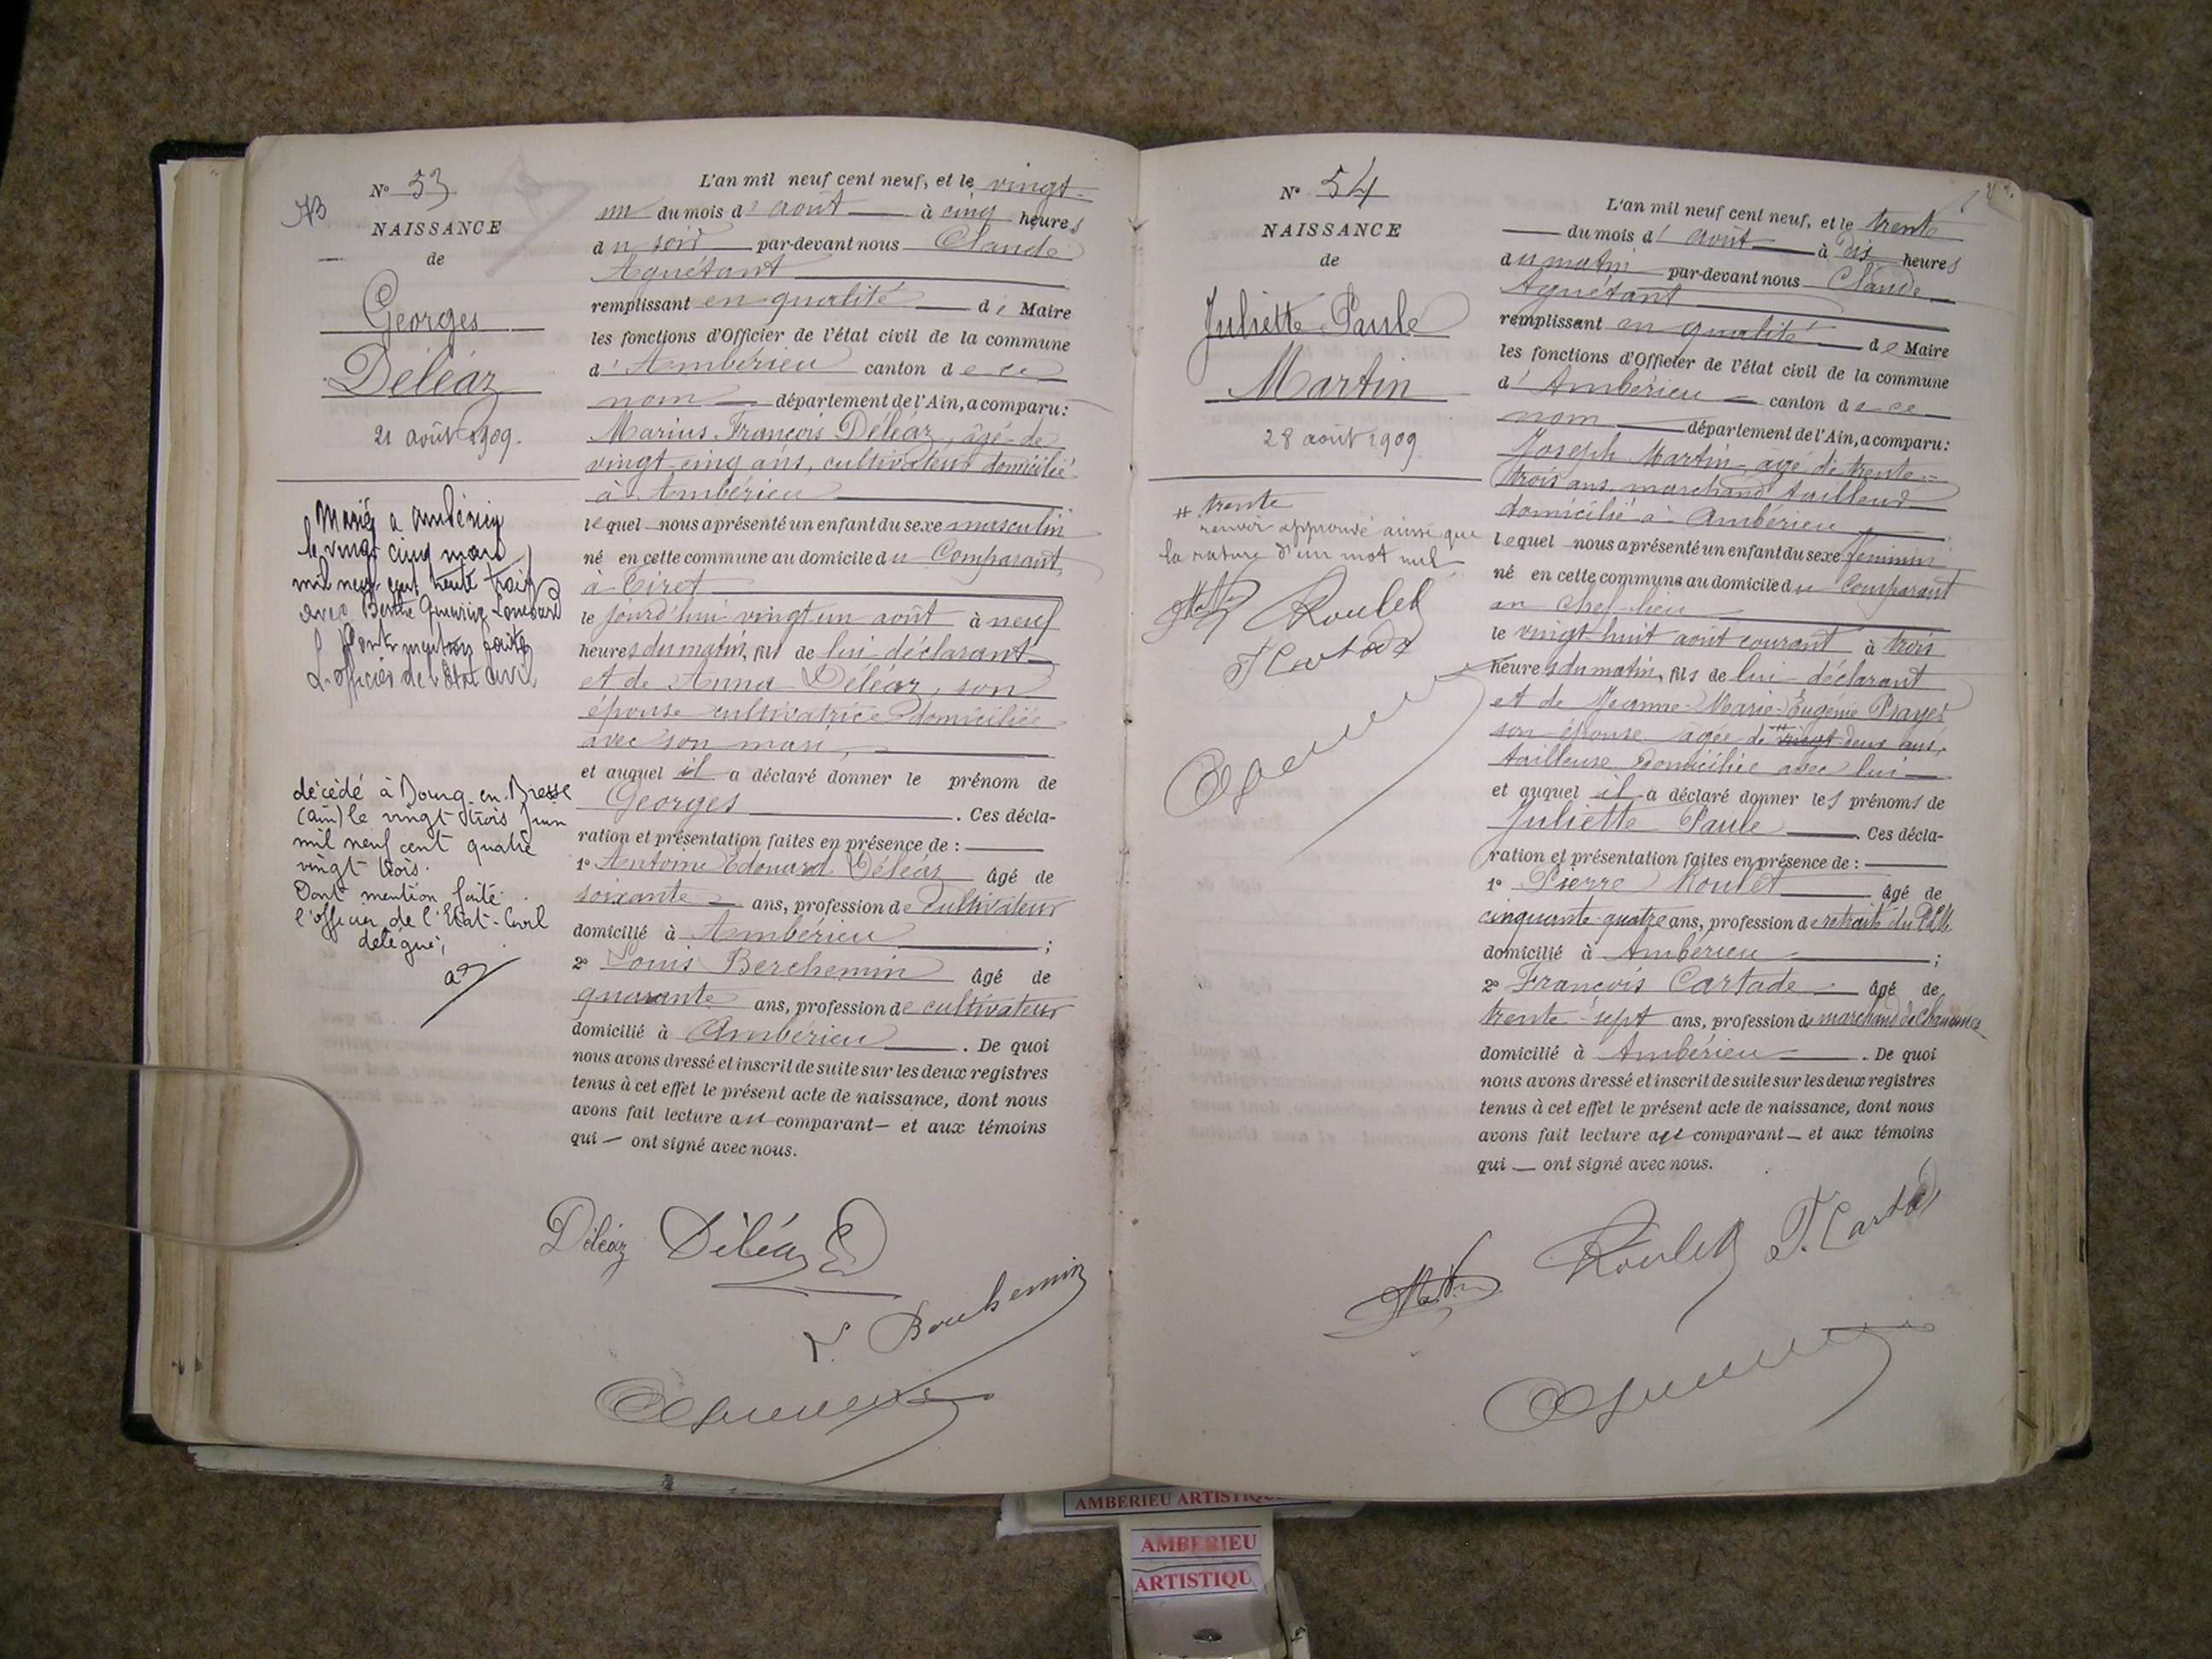 N° 53
NAISSANCE
de
Georges
Déléaz
21 août 1909.
Marié a Ambérieu
le vingt cinq mars
mil neuf cent trente trois
avec Berthe Lombard
Dont mention faite
L'officier de l'Etat civil
décédé à Bourg-en-Bresse
(Ain) le vingt trois juin
mil neuf cent quatre
vingt trois.
Dont mention faite
l'officier de l'Etat-Civil
délégué,
L'an mil neuf cent neuf, et le vingt
un du mois d'août à cinq heures
du soir par-devant nous Claude
Aguétant
remplissant en qualité de Maire
les fonctions d'Officier de l'état civil de la commune
d'Ambérieu canton de ce
nom département de l'Ain, a comparu:
Marius François Déléaz, âgé de
vingt-cinq ans, cultivateur domicilié
à Ambérieu
lequel nous a présenté un enfant du sexe masculin
né en cette commune au domicile du Comparant,
à Tiret
le jourd'hui vingt un août à neuf
heures du matin, fils de lui déclarant
et de Anna Déléaz, son
épouse cultivatrice domiciliée
avec son mari,
et auquel il a déclaré donner le prénom de
Georges. Ces décla-
ration et présentation faites en présence de :
1° Antoine Edouard Déléaz âgé de
soixante ans, profession de Cultivateur
domicilié à Ambérieu ;
2° Louis Berchemin âgé de
quarante ans, profession de cultivateur
domicilié à Ambérieu. De quoi
nous avons dressé et inscrit de suite sur les deux registres
tenus à cet effet le présent acte de naissance, dont nous
avons fait lecture au comparant et aux témoins
qui ont signé avec nous.
Déléaz Déléaz
N° 54
NAISSANCE
de
Juliette Paule
Martin
28 août 1909
# trente
renvoi approuvé ainsi que
la rature d'un mot nul
Roulet
L'an mil neuf cent neuf, et le trente
du mois d'août à dix heures
du matin par-devant nous Claude
Aguétant
remplissant en qualité de Maire
les fonctions d'Officier de l'état civil de la commune
d'Ambérieu canton de ce
nom département de l'Ain, a comparu:
Joseph Martin, âgé de trente-
trois ans, marchand tailleur
domicilié à Ambérieu
lequel nous a présenté un enfant du sexe féminin
né en cette commune au domicile du Comparant
au chef-lieu
le vingt-huit août courant à trois
heures du matin, fils de lui déclarant
et de Jeanne-Marie-Eugénie
son épouse âgée de # vingt-deux ans,
tailleuse domiciliée avec lui
et auquel il a déclaré donner les prénoms de
Juliette Paule. Ces décla-
ration et présentation faites en présence de :
1° Pierre Roulet âgé de
cinquante-quatre ans, profession de retraité du P.L.M.
domicilié à Ambérieu ;
2° François Cartade âgé de
trente-sept ans, profession de marchand de Chaussures
domicilié à Ambérieu. De quoi
nous avons dressé et inscrit de suite sur les deux registres
tenus à cet effet le présent acte de naissance, dont nous
avons fait lecture au comparant et aux témoins
qui ont signé avec nous.
Roulet
AMBERIEU
AMBERIEU
ARTISTIQU